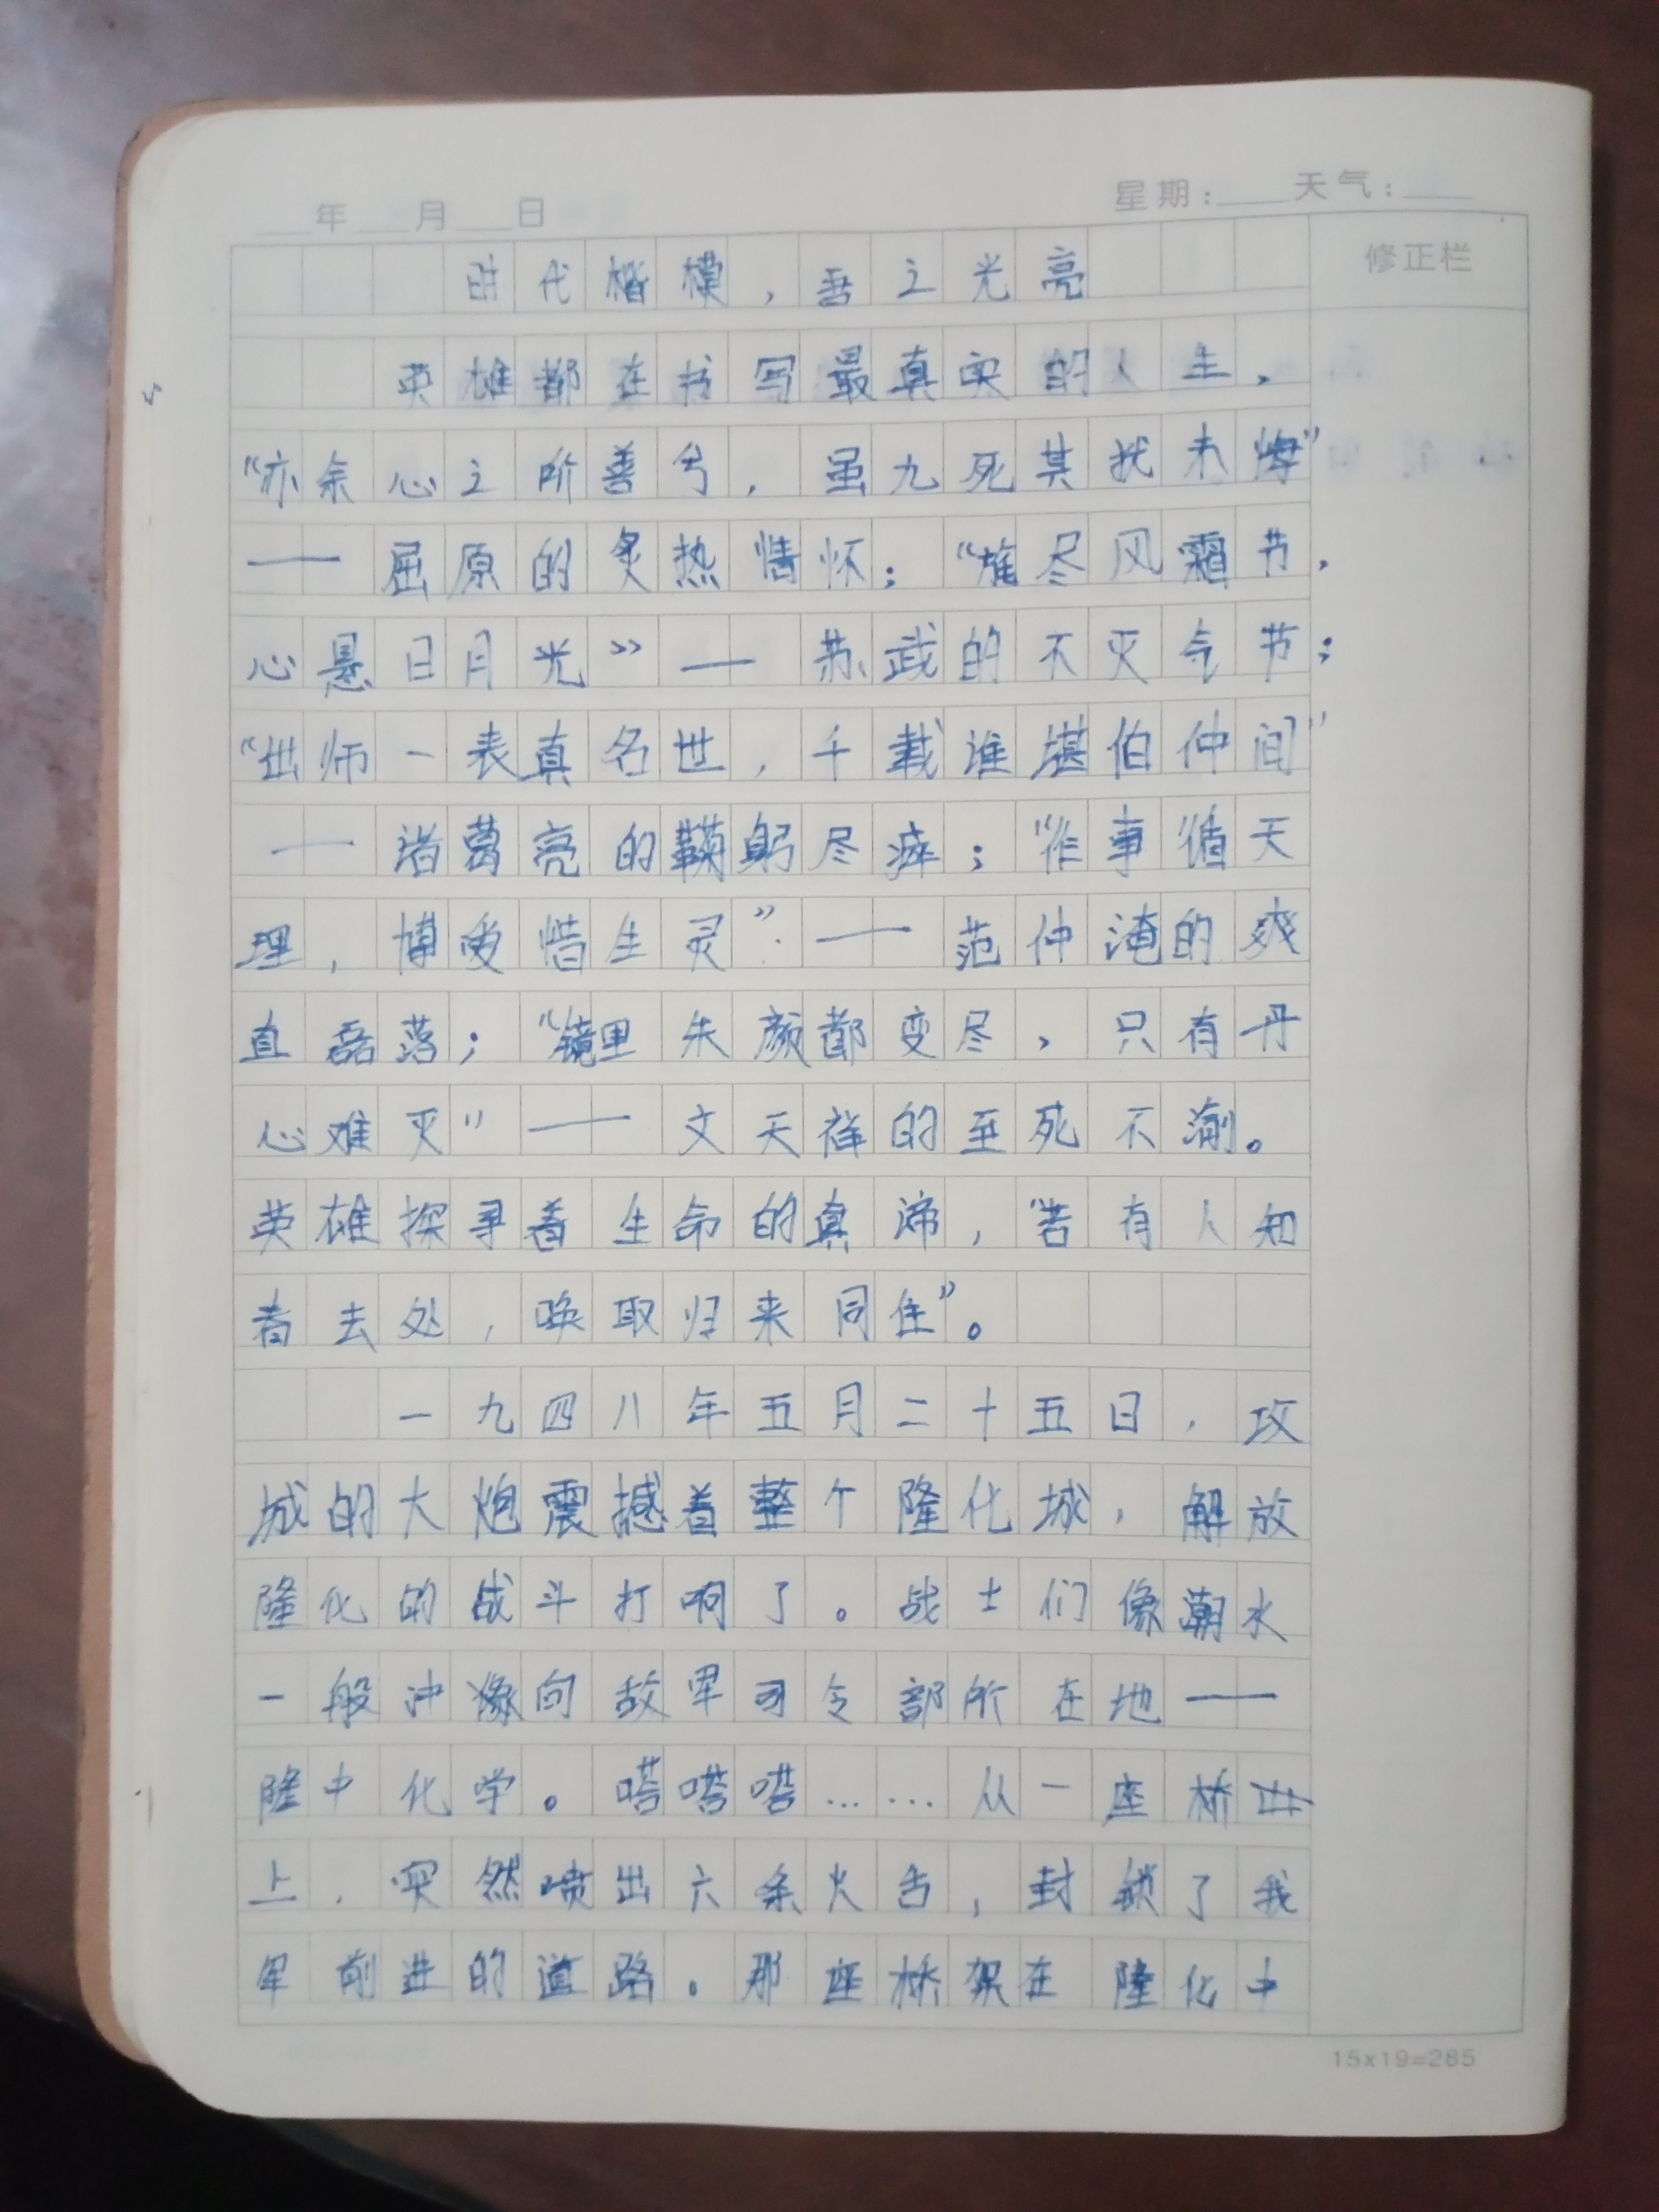 ___年___月___日
星期:____天气:____
修正栏
时代楷模,吾之光亮
英雄都在书写最真实的人生,
“亦余心之所善兮,虽九死其犹未悔”
——屈原的炙热情怀;“旄尽风霜节,
心悬日月光”——苏武的不灭气节;
“出师一表真名世,千载谁堪伯仲间”
——诸葛亮的鞠躬尽瘁;“作事循天
理,博爱惜生灵”——范仲淹的爽
直磊落;“镜里朱颜都变尽,只有丹
心难灭”——文天祥的至死不渝。
英雄探寻着生命的真谛,“若有人知
春去处,唤取归来同住”。
一九四八年五月二十五日,攻
城的大炮震撼着整个隆化城,解放
隆化的战斗打响了。战士们像潮水
一般冲像向敌军司令部所在地——
隆中化学。嗒嗒嗒……从一座桥
上,突然喷出六条火舌,封锁了我
军前进的道路。那座桥架在隆化中
15x19=285